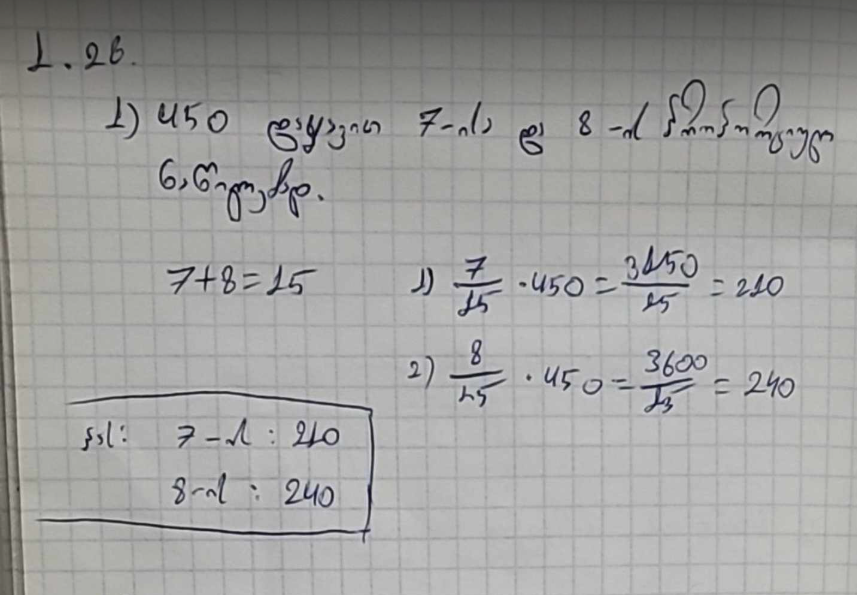 1.26.
1) 450 დავყოთ 7-ისა და 8-ის პროპორციულ
ნაწილებად.
7+8=15
1) 7/15 · 450 = 3150/15 = 210
2) 8/15 · 450 = 3600/15 = 240
პას: 7-ის : 210
8-ის : 240